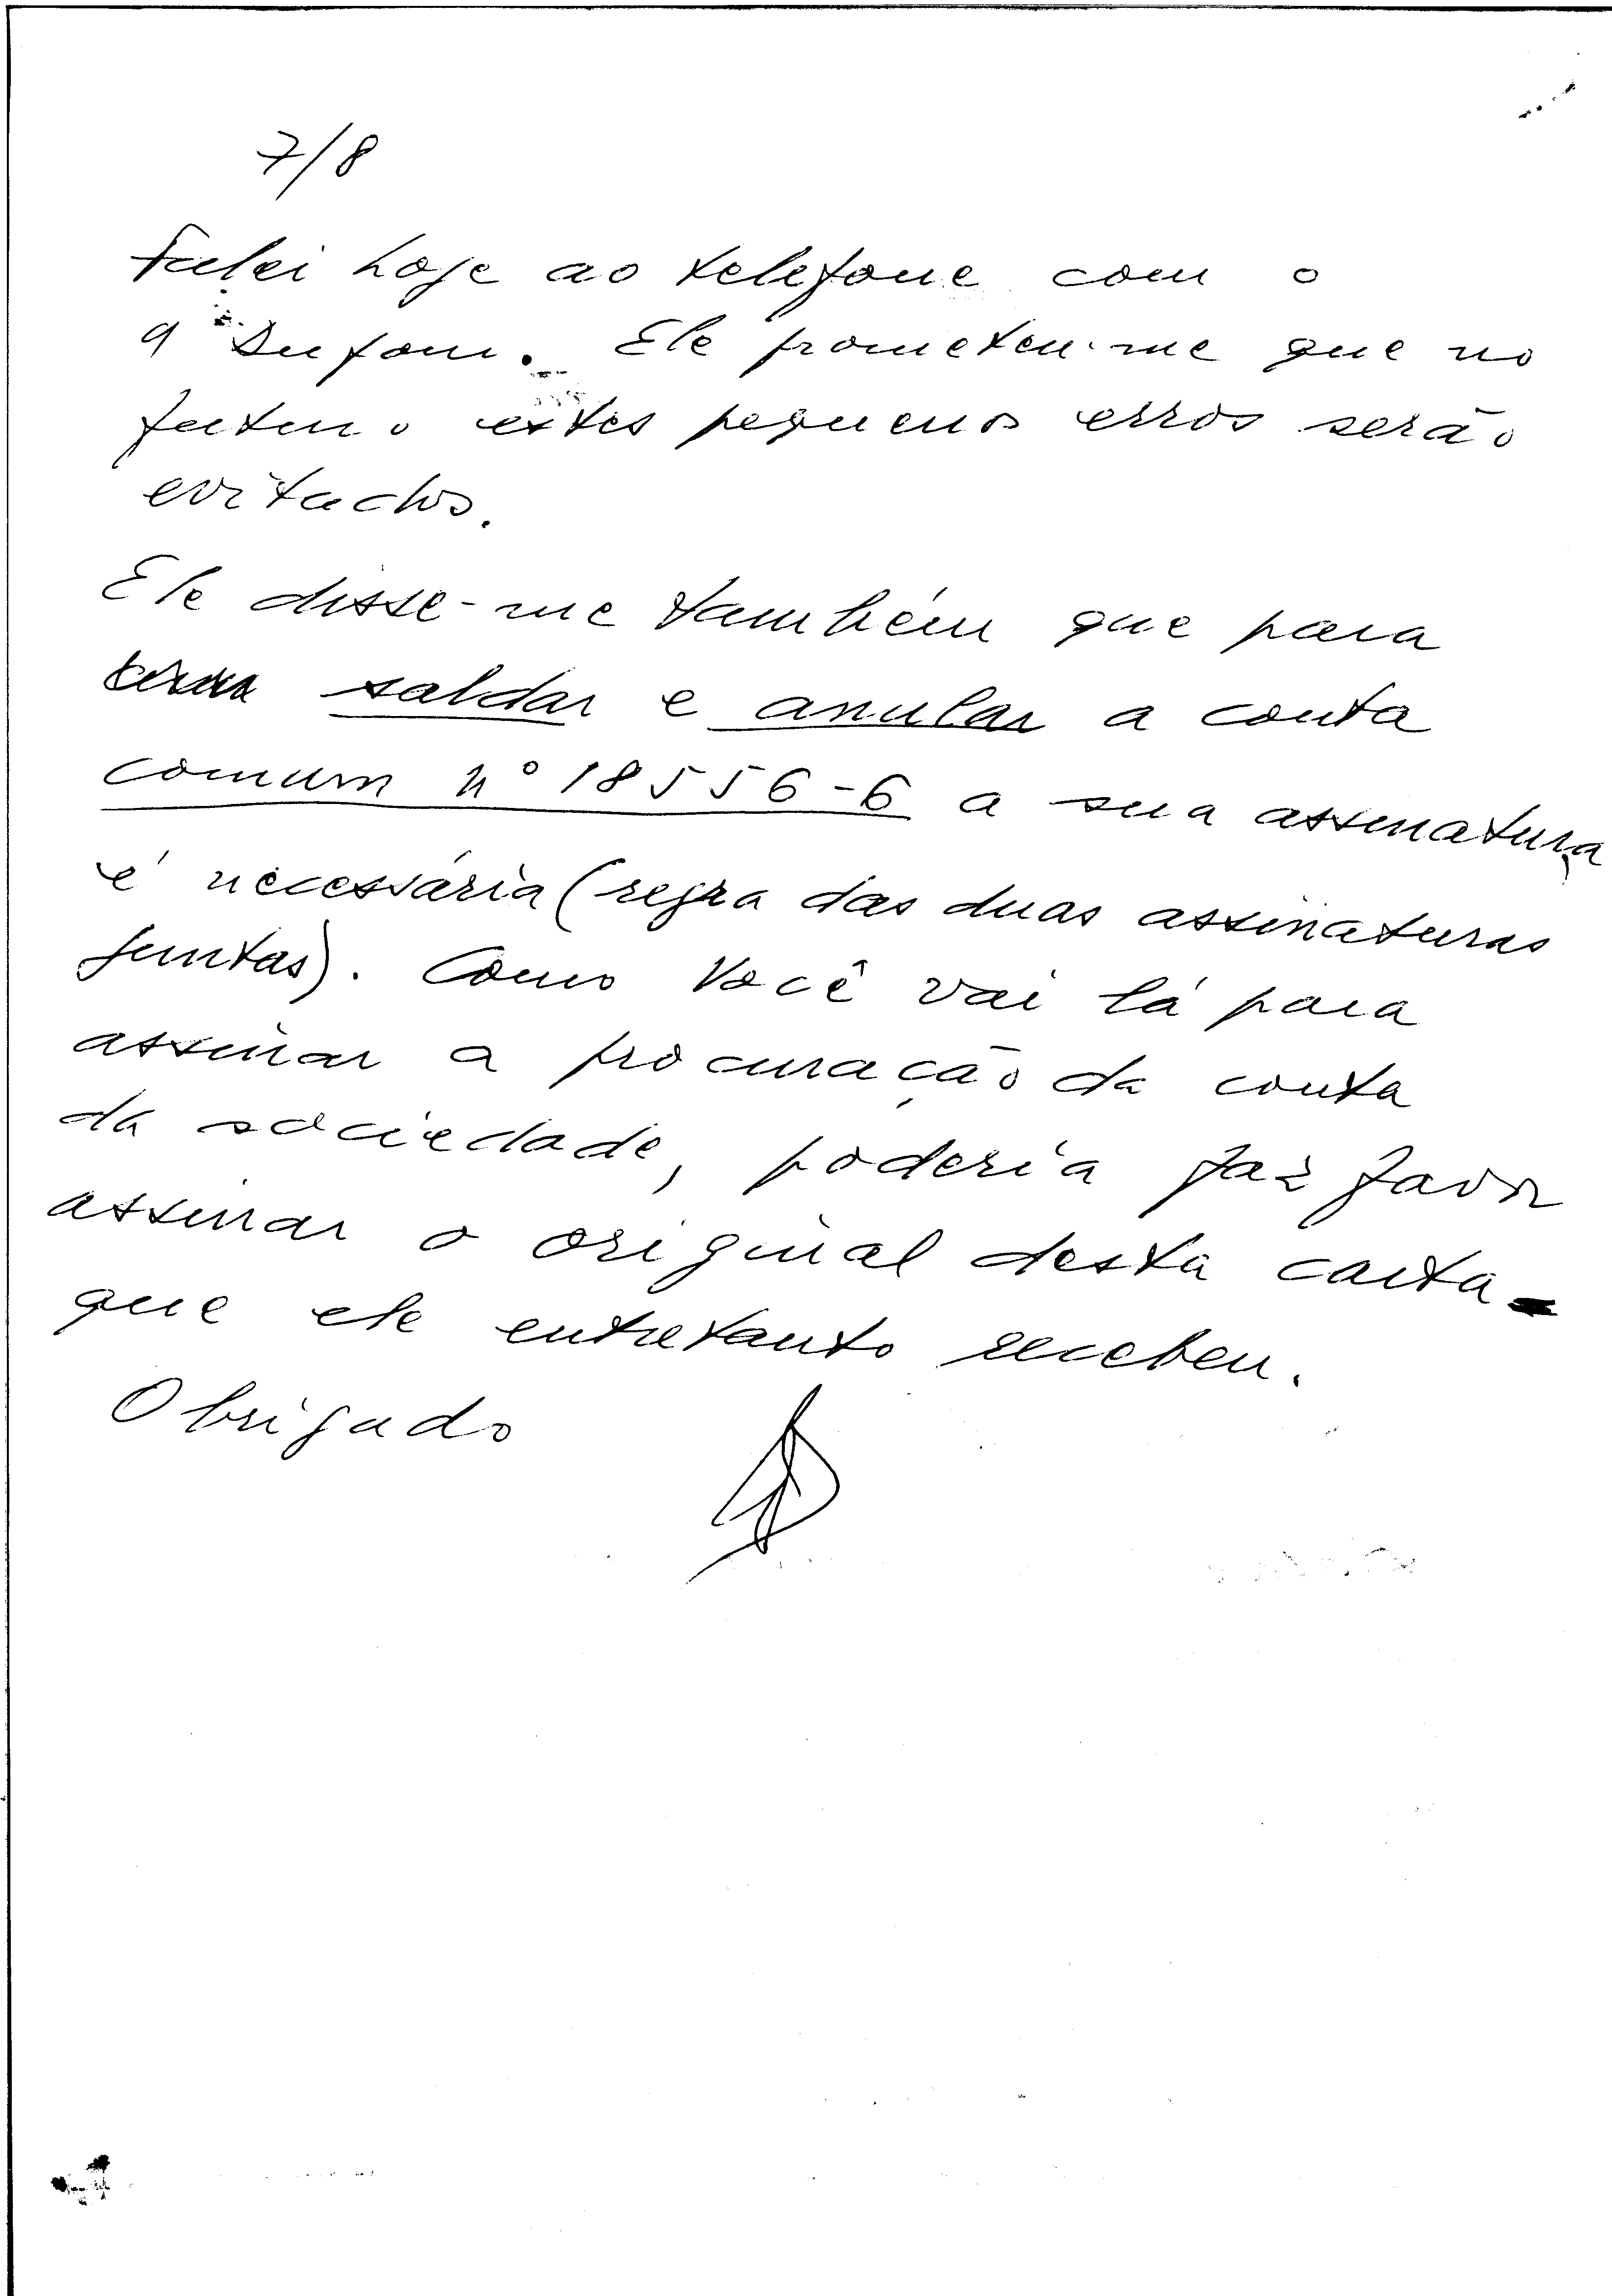 7/8
Falei hoje ao telefone com o
Ele prometeu-me que no
futuro estes pequenos erros serão
evitados.
Ele disse-me também que para
saldar e anular a conta
comum nº 18556-6 a sua assinatura
é necessária (regra das duas assinaturas
juntas). Como Você vai lá para
assinar a procuração da conta
da sociedade, poderia faz favor
assinar o original desta carta
que ele entretanto recebeu.
Obrigado